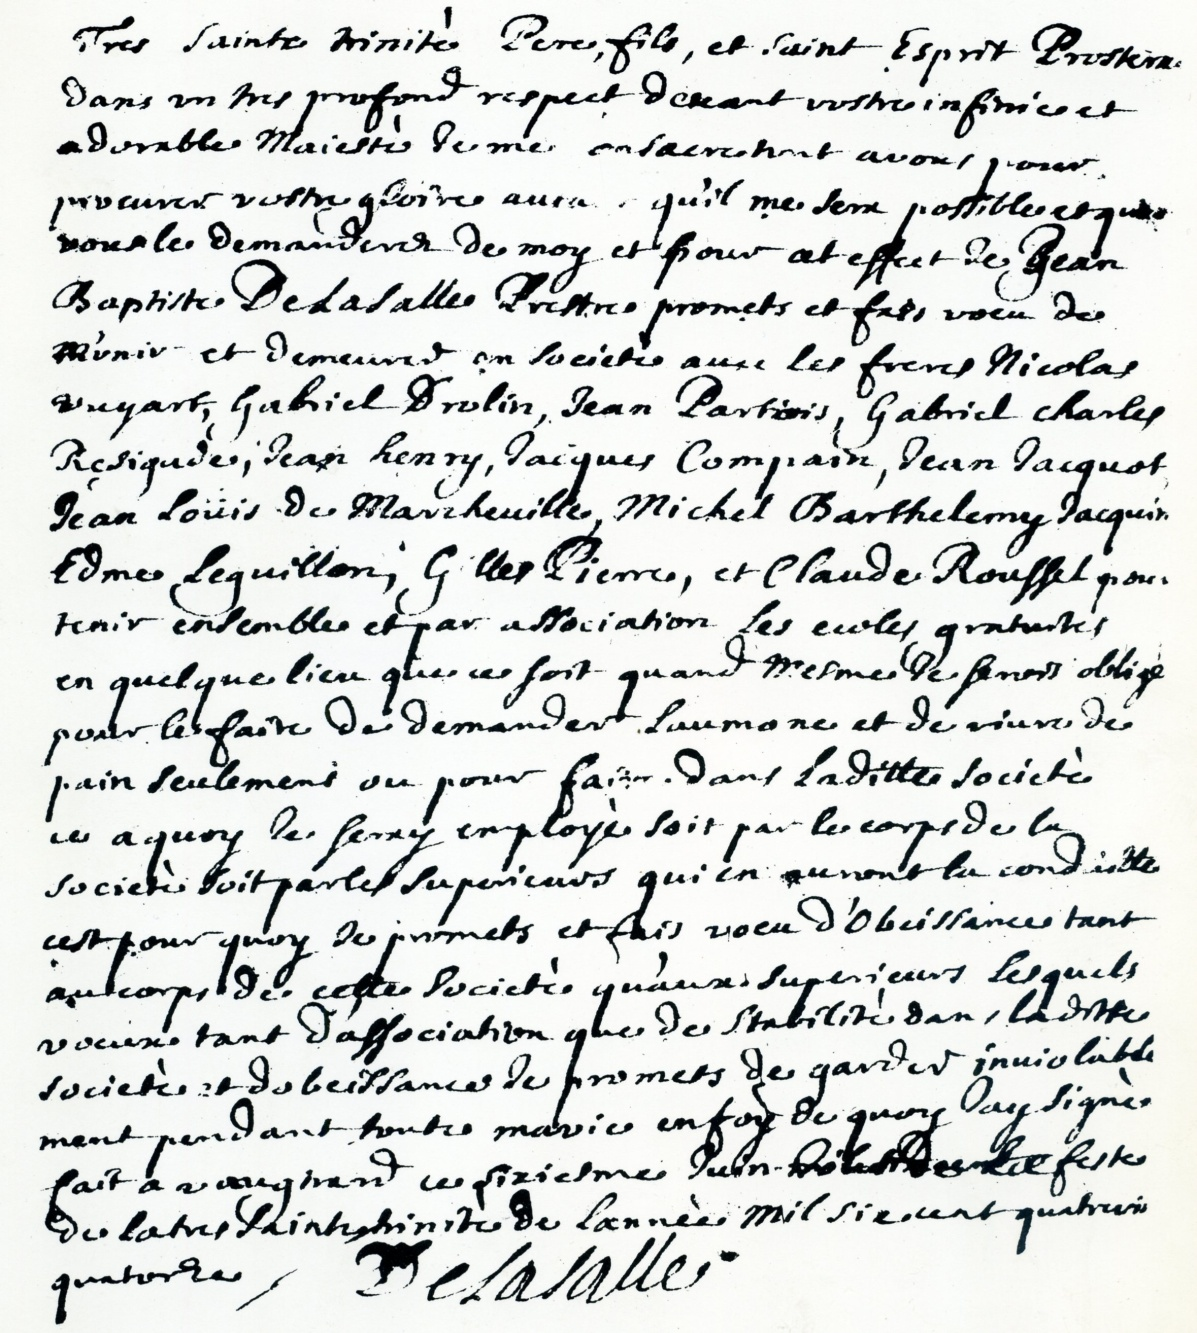 Tres Sainte trinité Pere, fils, et saint Esprit Prosterné
dans un tres profond respect deuant vostre infinie et
adorable Maiesté Je me consacre tout a vous pour
procurer vostre gloire autant qu'il me sera possible et que
vous le demanderez de moy et pour cet effect Je Jean
Baptiste De La Salle Prestre promets et fais voeu de
M'vnir et demeurer en Societé auec les freres Nicolas
vuyart, Gabriel Drolin, Jean Partois, Gabriel charles
Resigade, Jean henry, Jacques Compain, Jean Jacquot,
Jean Loüis de Marcheuille, Michel Barthelemy Jacquin
Edme Leguillon, Gilles Pierre, et Claude Roussel pour
tenir ensemble et par association Les ecoles gratuites
en quelque lieu que ce soit quand mesme Je serois obligé
pour le faire de demander Laumone et de viure de
pain seulement ou pour faire dans Laditte Societé
ce a quoy Je seray employé soit par le corps de la
societé soit par les superieurs qui en auront la conduitte
cest pour quoy Je promets et fais voeu d'Obeissance tant
au corps de cette Societé qu'aux superieurs Lesquels
voeux tant d'association que de Stabilité dans laditte
societé et dobeissance Je promets de garder inuiolable
ment pendant toute ma vie en foy de quoy Jay signé
fait a vaugirard ce sixiesme Juin feste
de la tres Sainte trinité de Lannée Mil six cent quatrevin
quatorze
De La Salle